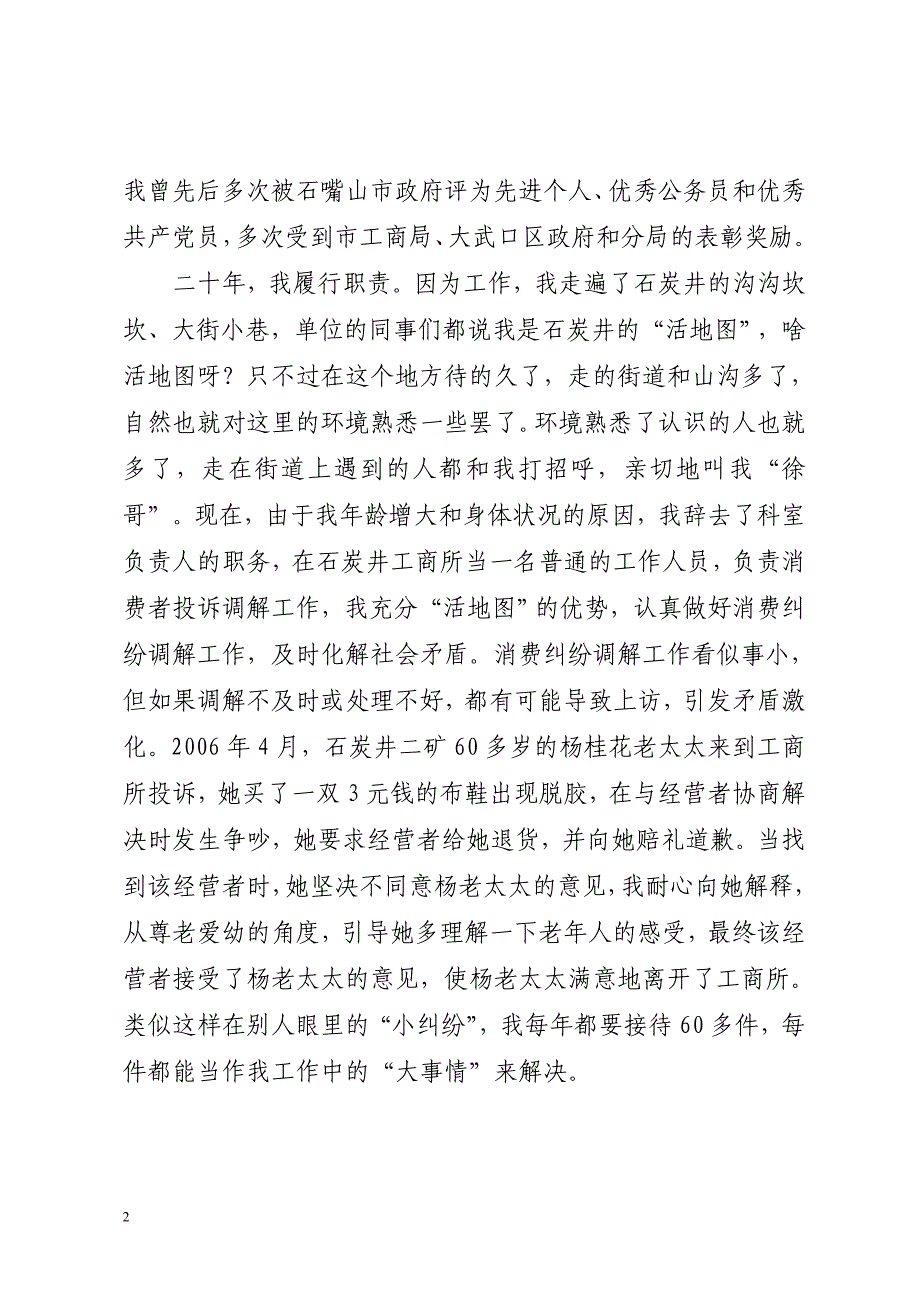 我曾先后多次被石嘴山市政府评为先进个人、优秀公务员和优秀
共产党员，多次受到市工商局、大武口区政府和分局的表彰奖励。
二十年，我履行职责。因为工作，我走遍了石炭井的沟沟坎
坎、大街小巷，单位的同事们都说我是石炭井的“活地图”，啥
活地图呀？只不过在这个地方待的久了，走的街道和山沟多了，
自然也就对这里的环境熟悉一些罢了。环境熟悉了认识的人也就
多了，走在街道上遇到的人都和我打招呼，亲切地叫我“徐
哥”。现在，由于我年龄增大和身体状况的原因，我辞去了科室
负责人的职务，在石炭井工商所当一名普通的工作人员，负责消
费者投诉调解工作，我充分“活地图”的优势，认真做好消费纠
纷调解工作，及时化解社会矛盾。消费纠纷调解工作看似事小，
但如果调解不及时或处理不好，都有可能导致上访，引发矛盾激
化。2006 年 4 月，石炭井二矿 60 多岁的杨桂花老太太来到工商
所投诉，她买了一双 3 元钱的布鞋出现脱胶，在与经营者协商解
决时发生争吵，她要求经营者给她退货，并向她赔礼道歉。当找
到该经营者时，她坚决不同意杨老太太的意见，我耐心向她解释，
从尊老爱幼的角度，引导她多理解一下老年人的感受，最终该经
营者接受了杨老太太的意见，使杨老太太满意地离开了工商所。
类似这样在别人眼里的“小纠纷”，我每年都要接待 60 多件，每
件都能当作我工作中的“大事情”来解决。
2